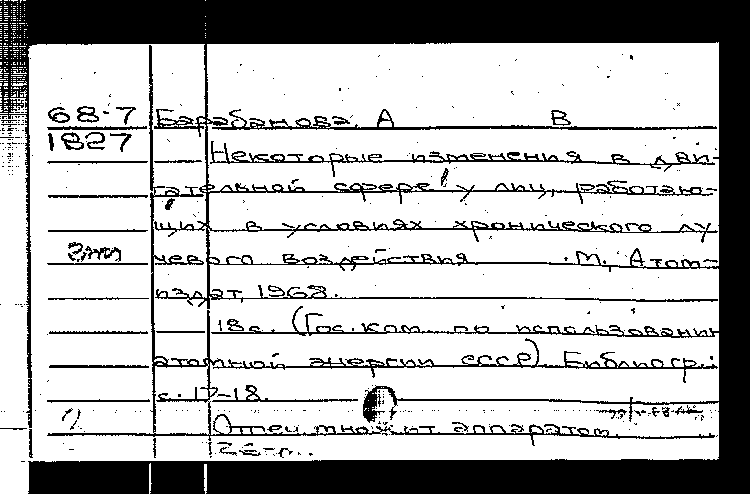 68-7 Барабанова, А В
1827
Некоторые изменения в дви-
гательной сфере у лиц, работаю-
щих в условиях хронического лу
чевого воздействия М., Атом-
издат, 1968.
18с. (Гос. ком. по использованию
атомной энергии СССР) Библиогр.:
с. 17-18.
Отпеч. множит. аппаратом.